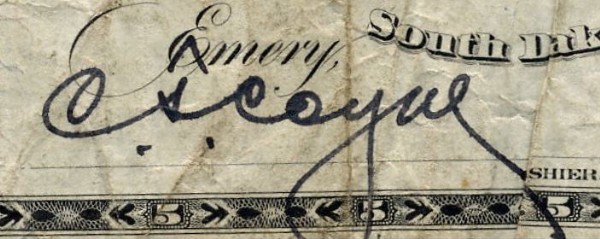 Emery, South Dak
C. A. Coyne
SHIER
5 5 5